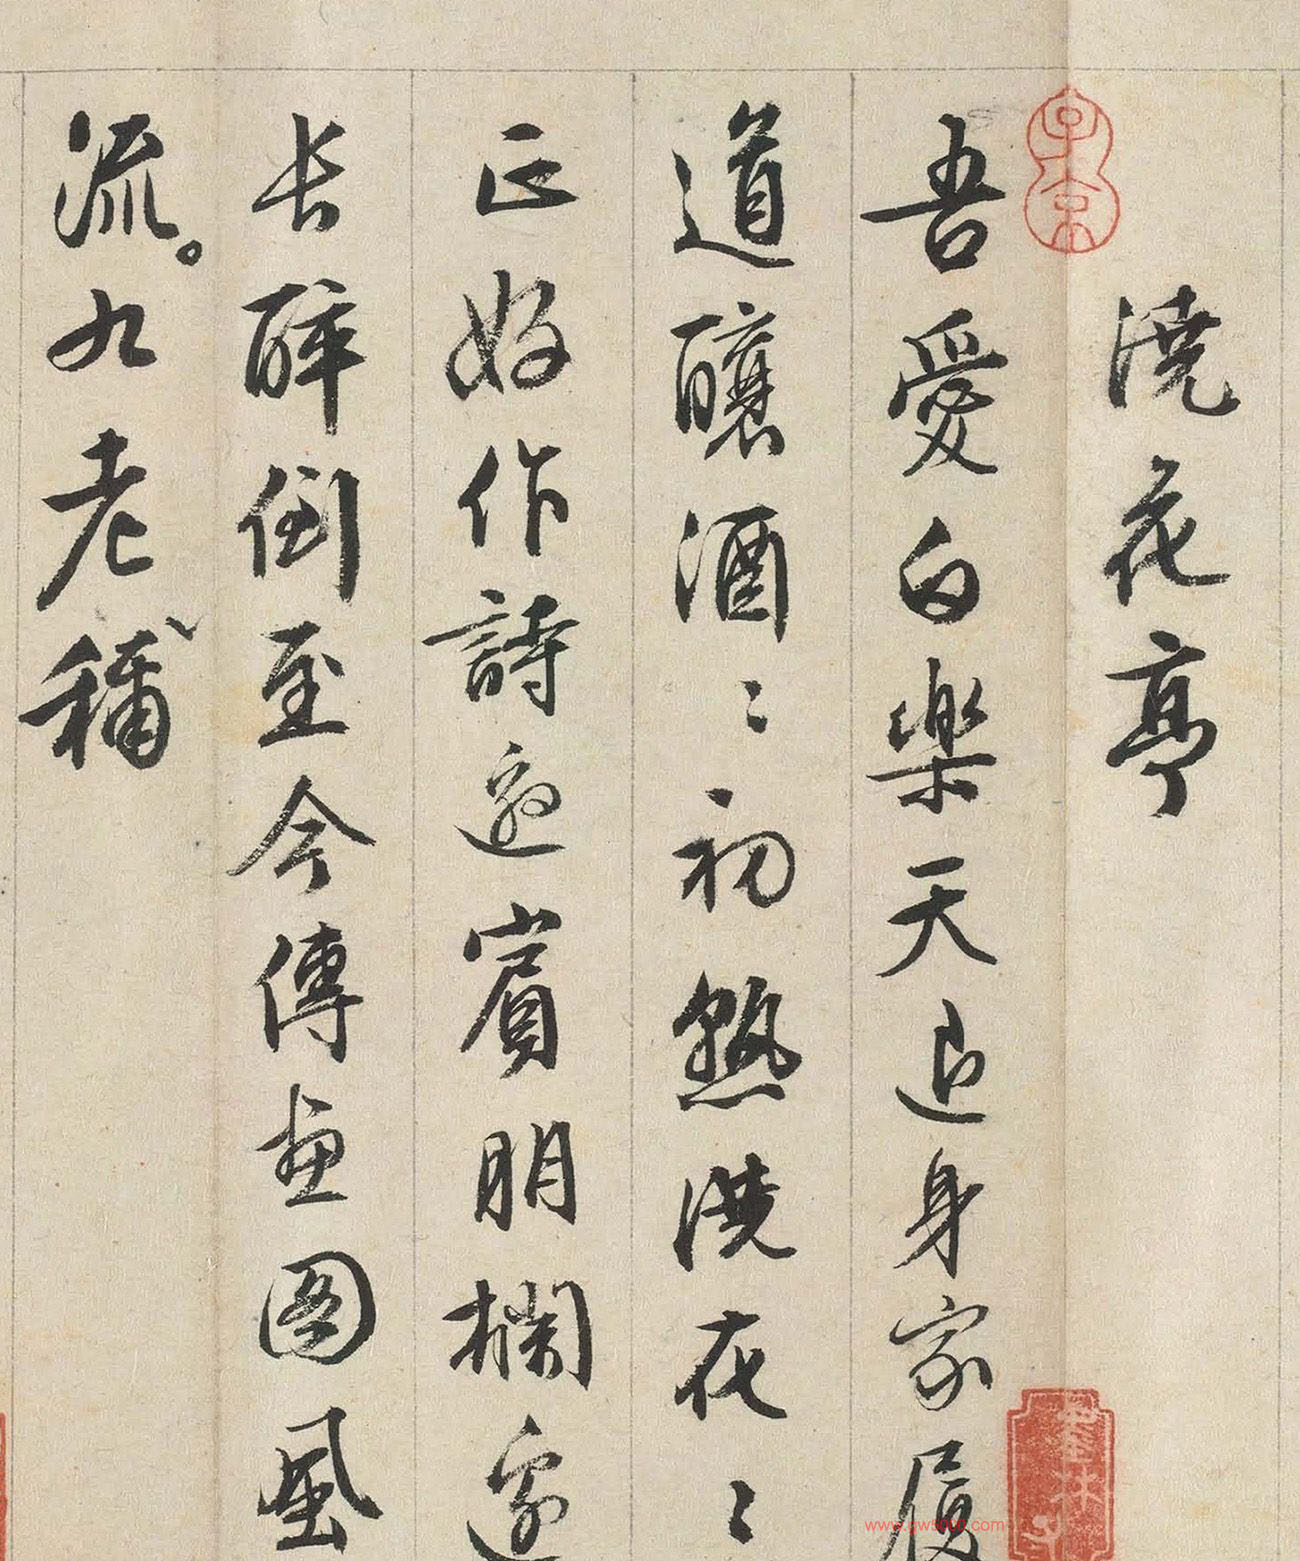 澆花亭
吾愛白樂天退身家履
道釀酒〻初熟澆花〻
正好作詩邀賓朋欄邊
长醉倒至今傳畫圖風
流。九老稱
www.gw5000.com